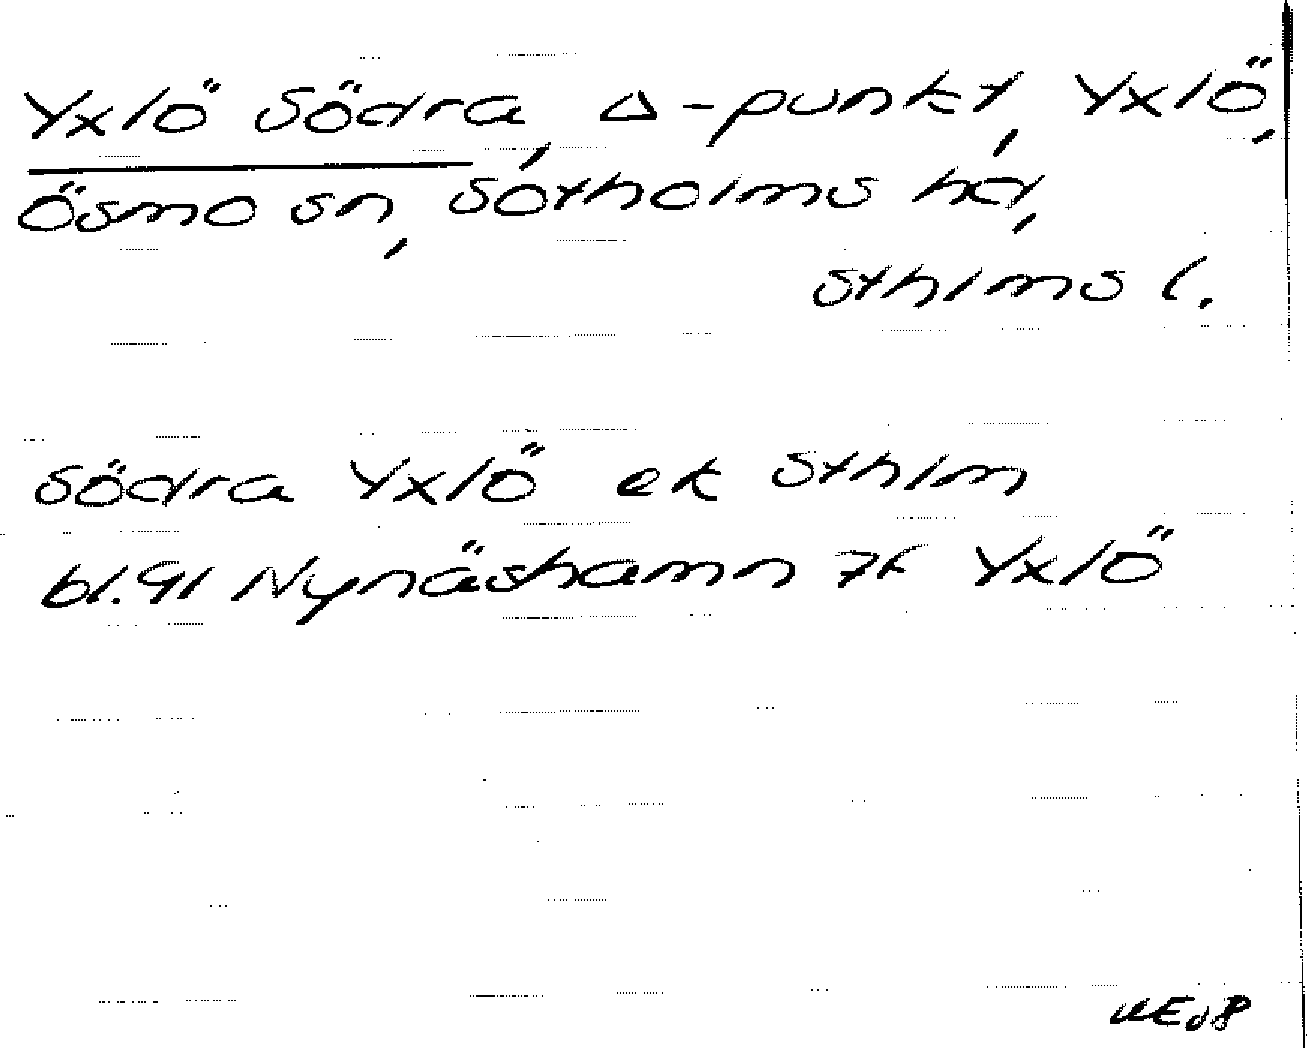 Yxlö Södra, Δ-punkt, Yxlö,
Ösmo sn, Sotholms hd,
Sthlms l.
Södra Yxlö ek Sthlm
bl. 91 Nynäshamn Yxlö